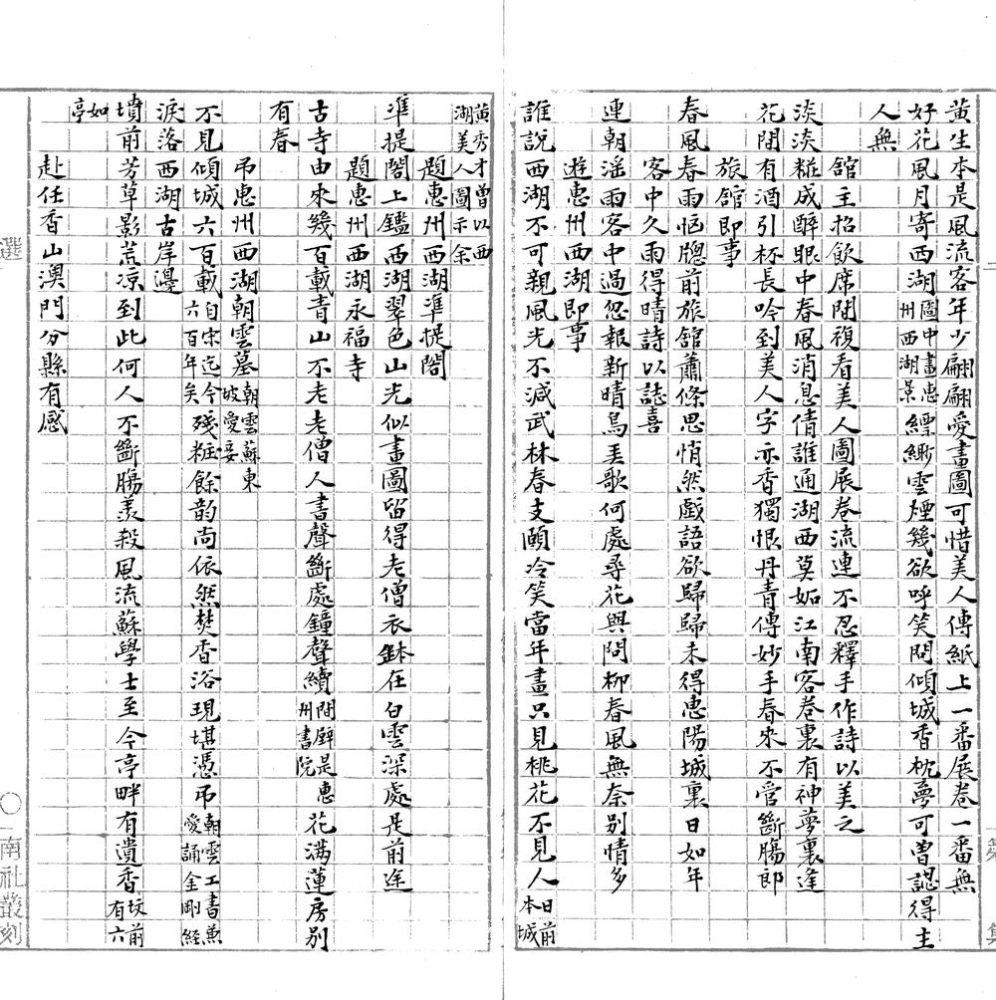 黃生本是風流客年少翩翩愛畫圖可惜美人傳紙上一番展卷一番無
好花風月寄西湖圖中畫惠州西湖景縹緲雲煙幾欲呼笑問傾城香枕夢可曾認得主
人無
館主招飲席間複看美人圖展卷流連不忍釋手作詩以美之
淡淡糚成醉眼中春風消息倩誰通湖西莫妬江南客卷裏有神夢裏逢
花間有酒引杯長吟到美人字亦香獨恨丹青傳妙手春來不管斷腸郎
旅舘即事
春風春雨惱牕前旅舘蕭條思悄然戲語欲歸歸未得惠陽城裏日如年
客中久雨得晴詩以誌喜
連朝滛雨客中過忽報新晴鳥弄歌何處尋花興問柳春風無奈別情多
遊惠州西湖即事
誰說西湖不可親風光不減武林春支頤冷笑當年畫只見桃花不見人日前本城
黃秀才曾以西湖美人圖示余
題惠州西湖凖提閣
凖提閣上鑑西湖翠色山光似畫圖留得老僧衣鉢在白雲深處是前途
題惠州西湖永福寺
古寺由來幾百載青山不老老僧人書聲斷處鐘聲續間壁是惠州書院花滿蓮房別
有春
弔惠州西湖朝雲墓朝雲蘇東坡愛妾
不見傾城六百載自宋迄今六百年矣殘糚餘韵尚依然焚香浴現堪憑弔朝雲工書兼愛誦金剛經
淚落西湖古岸邊
墳前芳草影荒凉到此何人不斷腸羨殺風流蘇學士至今亭畔有遺香坟前有六
如亭
赴任香山澳門分縣有感
選
〇
南社叢刻
第
集